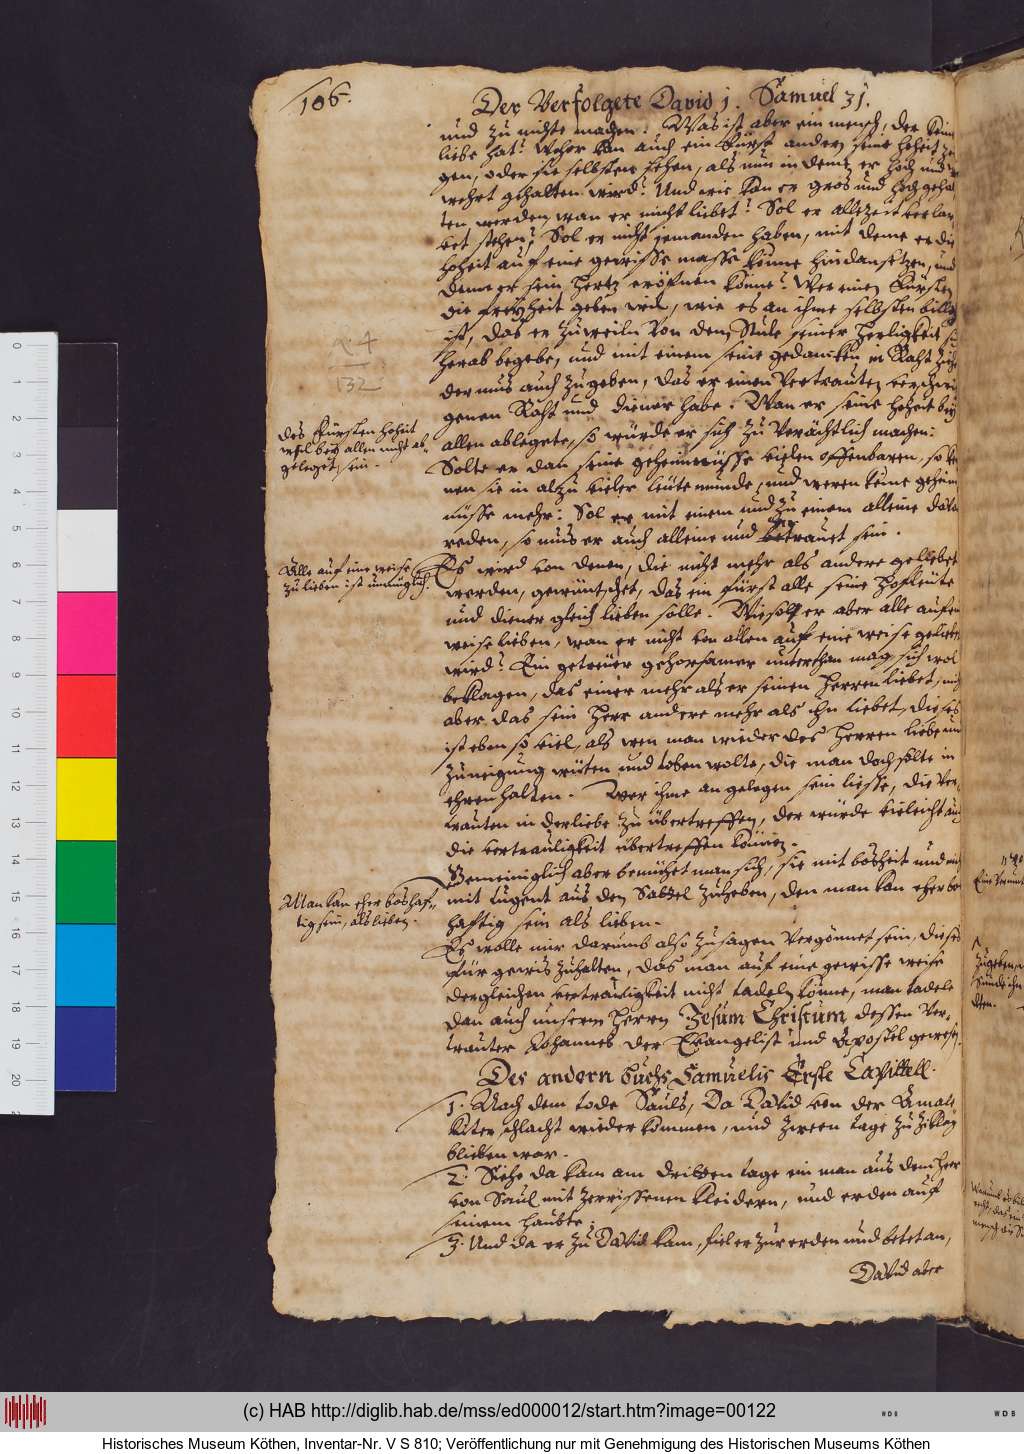 106.
Der Verfolgete David 1. Samuel 31.
und zu nichte machen? Was ist aber ein mensch, der keine
liebe hat? Woher kan auch ein Fürst anders seine hoheit
gen, oder sie selbsten sehen, als nun in deme er hoch und
wehrt gehalten wird? Und wie kan er gros und hoch gehal
ten werden wan er nicht liebet? Sol er allezeit
stehen? Sol er nicht jemanden haben, mit deme er die
hoheit auf eine gewisse masse könne hindansetzen, und
deme er sein hertz eröfnen könne? Wer einen Fürsten
die freyheit geben wil, wie es an ihme selbsten billig
ist, das er zuweiln von dem Stule seiner Herligkeit
herab begebe, und mit einem seine gedancken in Raht
der mus auch zugeben, das er einen Vertrauten
genen Raht und diener habe. Wan er seine hoheit bey
allen ablegete, so würde er sich zu verächtlich machen:
Solte er dan seine geheimnüsse vielen offenbaren, so
men sie in alzu vieler leute munde, und weren keine geheim
nüsse mehr: Sol er mit einem und zu einem alleine davon
reden, so mus er auch alleine und vertraut sein.
Des Fürsten hoheit
mus bey allen nicht ab-
geleget sein.
R. 4
132
Alle auf eine weise
zu lieben ist unmüglich.
Es wird von denen, die nicht mehr als andere geliebet
werden, gewünschet, das ein Fürst alle seine Hofleute
und diener gleich lieben solle. Wie solt er aber alle auf eine
weise lieben, wan er nicht von allen auf eine weise geliebet
wird? Ein getreuer gehorsamer unterthan mag sich wol
beklagen, das einer mehr als er seinen Herren liebet, nicht
aber das sein Herr andere mehr als ihn liebet, dieses
ist eben so viel, als wen man wieder des Herren liebe und
zuneigung wüten und toben wolte, die man doch solte in
ehren halten. Wer ihme angelegen sein liesse, die Ver-
trauten in der liebe zu übertreffen, der würde vieleicht auch
die vertrauligkeit übertreffen können.
Gemeiniglich aber bemühet man sich, sie mit bösheit und nicht
mit tugent aus den Sattel zuheben, den man kan eher bos
haftig sein als lieben.
Man kan eher boshaf-
tig sein, als lieben.
Es wolle mir darumb also zusagen vergönnet sein, dieses
für gewis zuhalten, das man auf eine gewisse weise
dergleichen vertrauligkeit nicht tadeln könne, man tadele
dan auch unserm Herrn Jesum Christum dessen Ver-
trauter Johannes der Evangelist und Apostel gewesen.
Des andern buchs Samuelis Erste Capittell.
1. Nach dem tode Sauls, Da David von der Amale
kiter schlacht wieder kommen, und zween tage zu Ziklag
blieben war.
2. Siehe da kam am dritten tage ein man aus dem heer
von Saul mit zerrissenen kleidern, und erden auf
seinem haubte.
3. Und da er zu David kam, fiel er zur erden und betet an,
David aber
(c) HAB http://diglib.hab.de/mss/ed000012/start.htm?image=00122
WDB
WDB
Historisches Museum Köthen, Inventar-Nr. V S 810; Veröffentlichung nur mit Genehmigung des Historischen Museums Köthen